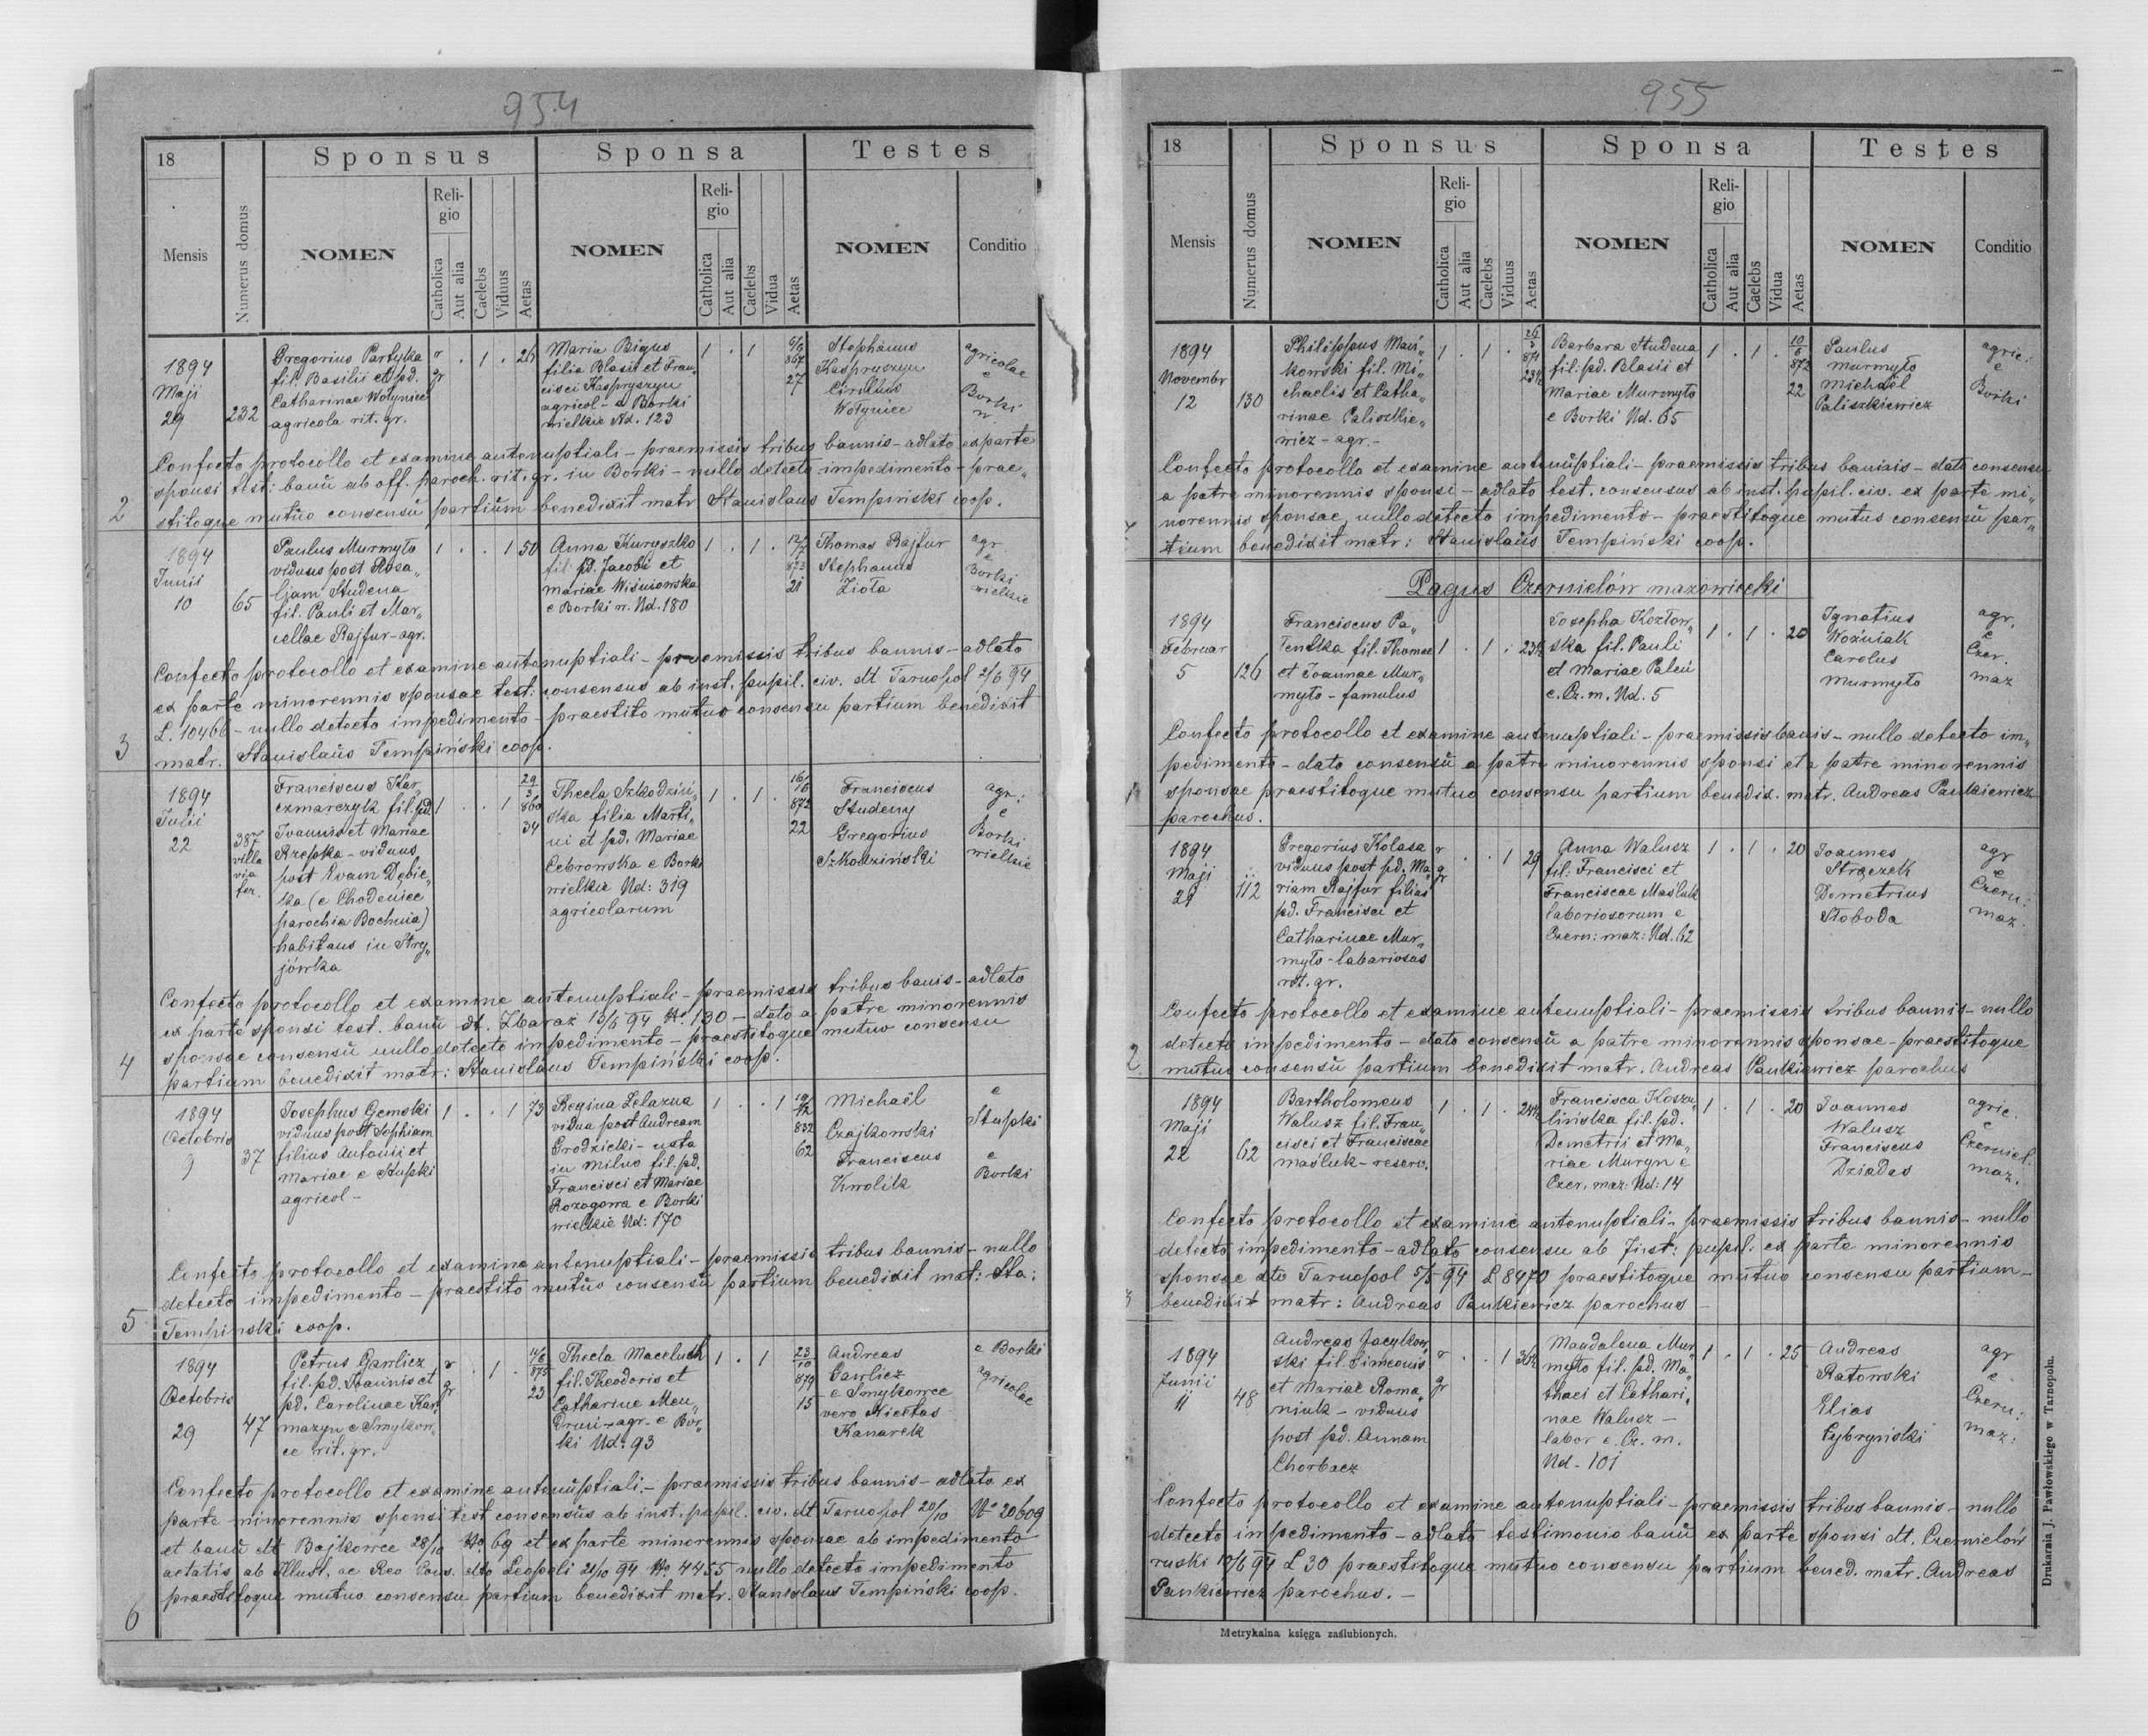 954
18
Sponsus
Sponsa
Testes
Mensis
Numerus domus
NOMEN
Religio
Catholica
Aut alia
Caelebs
Viduus
Aetas
NOMEN
Religio
Catholica
Aut alia
Caelebs
Vidua
Aetas
NOMEN
Conditio
1894
Maji
29
232
Gregorius Partyka
fil. Basilii et pd.
Catharinae Wołyniec
agricola rit. gr.
r
gr
. 1 . 26
Maria Bigus
filia Blasii et Fran„
cisci Kaspryszyn
agricol- e Borki
wielkie Nd. 123
1 . 1
867
27
Stephanus
Kaspryszyn
Cirillus
Wołyniec
agricolae
e
Borki
w.
Confecto protocollo et examine antenuptiali - praemissis tribus bannis - adlato ex parte
sponsi test: bann̄ ab off. paroch. rit. gr. in Borki - nullo detecto impedimento - prae„
stitoque mutuo consensu partium benedixit matr Stanislaus Tempiński coop.
2
1894
Junii
10
65
Paulus Murmyło
viduus post Rosa„
liam Studena
fil. Pauli et Mar„
cellae Rajfur - agr.
1 . . 1 50
Anna Kuryszko
fil. pd. Jacobi et
Mariae Wiśniowska
e Borki w. Nd. 180
1 . 1 .
873
21
Thomas Rajfur
Stephanus
Zioła
agr
e
Borki
wielkie
Confecto protocollo et examine antenuptiali - praemissis tribus bannis - adlato
ex parte minorennis sponsae test: consensus ab inst. pupil. civ. dt Tarnopol 2/6 94
L. 10466 - nullo detecto impedimento - praestito mutuo consensu partium benedixit
matr. Stanislaus Tempiński coop.
3
1894
Julii
22
387
villa
via
fer.
Franciscus Kar„
czmarczyk fil. pd.
Joannis et Mariae
Rzepka - viduus
post Evam Dębic„
ka (e Chodenice
parochia Bochnia)
habitans in Stry„
jówka
1 . . 1
29
3
860
34
Thecla Szkodziń„
ska filia Marti„
ni et pd. Mariae
Cebrowska e Borki
wielkie Nd: 319
agricolarum
1 . 1 .
872
22
Franciscus
Studeny
Gregorius
Szkodziński
agr:
e
Borki
wielkie
Confecto protocollo et examine antenuptiali - praemissis tribus bannis - adlato
ex parte sponsi test. bann̄ dt. Zbaraż 13/5 94 No 130 - dato a patre minorennis
sponsae consensu nullo detecto impedimento - praestitoque mutuo consensu
partium benedixit matr: Stanislaus Tempiński coop.
4
1894
Octobris
9
37
Josephus Gemski
viduus post Sophiam
filius Antonii et
Mariae e Stupki
agricol -
1 . . 1 73
Regina Zelazna
vidua post Andream
Grodzicki - nata
in Milno fil. pd.
Francisci et Mariae
Rozogowa e Borki
wielkie Nd: 170
1 . . 1
832
62
Michaël
Czajkowski
Franciscus
Krolik
e
Stupki
e
Borki
Confecto protocollo et examine antenuptiali - praemissis tribus bannis - nullo
detecto impedimento - praestito mutuo consensu partium benedixit mat: Sta:
Tempinski coop.
5
1894
Octobris
29
47
Petrus Gawlicz
fil. pd. Joannis et
pd. Carolinae Kar„
mazyn e Smykow„
ce rit. gr.
r
gr
. 1 .
23
Thecla Maceluch
fil. Theodoris et
Catharine Men„
Druni - agr. e Bor„
ki Nd. 93
1 . 1
23
10
879
15
Andreas
Gawlicz
e Smykowce
vero Nicetas
Kanarek
e Borki
agricolae
Confecto protocollo et examine antenuptiali - praemissis tribus bannis - adlato ex
parte minorennis sponsi test consensus ab inst. pupil. civ. dt Tarnopol 20/10 No 20609
et bann̄ dt Bajkowce 28/10 No 69 et ex parte minorennis sponsae ab impedimento
aetatis ab Illust. ac Reo Cons. dto Leopoli 21/10 94 No. 4455 nullo detecto impedimento
praestitoque mutuo consensu partium benedixit matr. Stanislaus Tempiński coop.
6
955
18
Sponsus
Sponsa
Testes
Mensis
Numerus domus
NOMEN
Religio
Catholica
Aut alia
Caelebs
Viduus
Aetas
NOMEN
Religio
Catholica
Aut alia
Caelebs
Vidua
Aetas
NOMEN
Conditio
1894
Novembr
12
130
Philippus Mań„
kowski fil. Mi„
chaelis et Catha„
rinae Paliszkie„
wicz - agr. -
1 . 1 .
871
23½
Barbara Studena
fil. pd. Blasii et
Mariae Murmyło
e Borki Nd. 65
1 . 1 .
10
6
872
22
Paulus
Murmyło
Michaël
Paliszkiewicz
agric:
e
Borki
Confecto protocollo et examine antenuptiali - praemissis tribus bannis - dato consensu
a patre minorennis sponsi - adlato test. consensus ab inst. pupil. civ. ex parte mi„
norennis sponsae nullo detecto impedimento - praestitoque mutuo consensu par„
tium benedixit matr: Stanislaus Tempiński coop.
Pagus Czernielów mazowiecki
1894
Februar
5
126
Franciscus Pa„
Tenska fil. Thomae
et Joannae Mur„
myło - famulus
1 . 1 . 23½
Josepha Kozłow„
ska fil. Pauli
et Mariae Paleń
e Cz. m. Nd. 5
1 . 1 . 20
Ignatius
Woźniak
Carolus
Murmyło
agr.
e
Czer.
maz
Confecto protocollo et examine antenuptiali - praemissis bannis - nullo detecto im„
pedimento - dato consensu a patre minorennis sponsi et a patre minorennis
sponsae praestitoque mutuo consensu partium benedix. matr. Andreas Pankiewicz
parochus.
1
1894
Maji
29
112
Gregorius Kolasa
viduus post pd. Ma„
riam Rajfur filius
pd. Francisci et
Catharinae Mur„
myło - labariosus
rit. gr.
r
gr
. . 1 29
Anna Walusz
fil. Francisci et
Franciscae Maśluk
laboriosorum e
Czern: maz: Nd. 62
1 . 1 . 20
Joannes
Strączek
Demetrius
Słoboda
agr
e
Czern:
maz.
Confecto protocollo et examine antenuptiali - praemissis tribus bannis - nullo
detecto impedimento - dato consensu a patre minorennis sponsae - praestitoque
mutuo consensu partium benedixit matr. Andreas Pankiewicz parochus
2
1894
Maji
22
62
Bartholomeus
Walusz fil. Fran„
cisci et Franciscae
Maśluk - reserv.
1 . 1 . 24½
Francisca Kosza„
lińska fil. pd.
Demetrii et Ma„
riae Muryn e
Czer. maz: Nd: 14
1 . 1 . 20
Joannes
Walusz
Franciscus
Dziadas
agric.
e
Czerniel.
maz.
Confecto protocollo et examine antenuptiali - praemissis tribus bannis - nullo
detecto impedimento - adlato consensu ab Inst: pupil. ex parte minorennis
sponsae dto Tarnopol 5/5 94 L 8470 praestitoque mutuo consensu partium -
benedixit matr: Andreas Pankiewicz parochus -
3
1894
Junii
11
48
Andreas Jacylkow„
ski fil. Simeonis
et Mariae Roma„
niuk - viduus
post pd. Annam
Chorbacz
r
gr
. . 1
Magdalena Mur„
myło fil. pd. Ma„
thaei et Cathari„
nae Walusz -
labor e Cz. m.
Nd - 101
1 . 1 . 25
Andreas
Ratowski
Elias
Cybryński
agr
e
Czern:
maz:
Confecto protocollo et examine antenuptiali - praemissis tribus bannis - nullo
detecto impedimento - adlato testimonio bann̄ ex parte sponsi dt. Czernielów
ruski 10/6 94 L 30 praestitoque mutuo consensu partium bened. matr. Andreas
Pankiewicz parochus. -
Metrykalna księga zaślubionych.
Drukarnia J. Pawłowskiego w Tarnopolu.